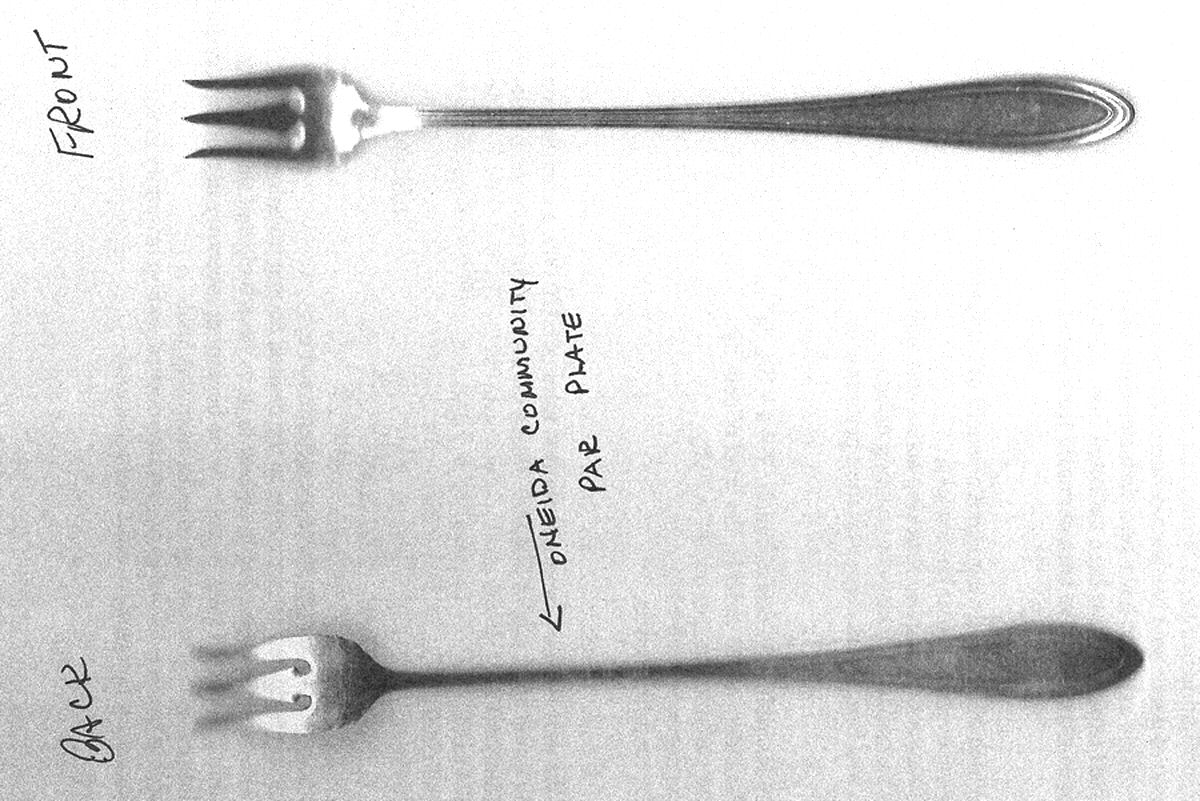 FRONT
ONEIDA COMMUNITY
PAR PLATE
BACK